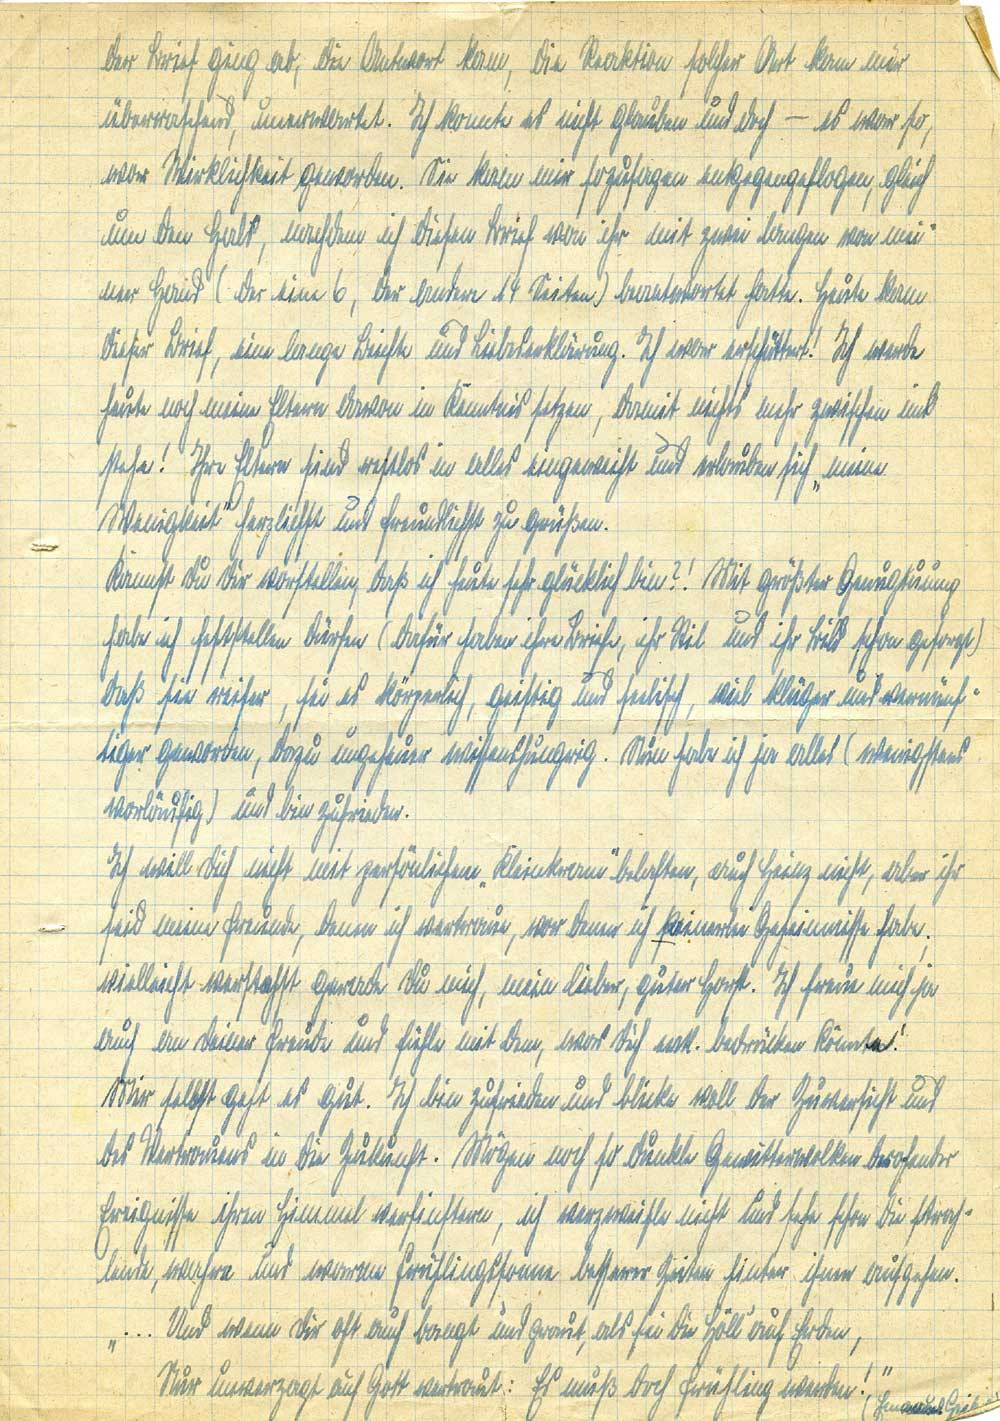 Der Brief ging ab, die Antwort kam, die Reaktion solcher Art kam mir
überraschend, unerwartet. Ich konnte es nicht glauben und doch — es war so,
war Wirklichkeit geworden. Sie kam mir sozusagen entgegengeflogen, gleich
um den Hals, nachdem ich diesen Brief von ihr mit zwei langen von mei-
ner Hand (der eine 6, der andere 14 Seiten) beantwortet hatte. Heute kam
dieser Brief, eine lange Beichte und Liebeserklärung. Ich war erschüttert! Ich werde
heute noch meine Eltern davon in Kenntnis setzen, damit nichts mehr zwischen uns
stehe! Ihre Eltern sind restlos in alles eingeweiht und erlauben sich „meine
Wenigkeit" herzlichst und freundlichst zu grüßen.
Kannst Du Dir vorstellen, daß ich heute sehr glücklich bin?! Mit größter Genugtuung
habe ich feststellen dürfen (dafür haben ihre Briefe, ihr Stil und ihr Bild schon gesorgt)
daß sie reifer, sei es körperlich, geistig und seelisch, viel klüger und vernünf-
tiger geworden, dazu ungeheuer wissenshungrig. Nun habe ich ja alles (wenigstens
vorläufig) und bin zufrieden.
Ich will Dich nicht mit persönlichem „Kleinkram" belasten, auch Heinz nicht, aber ihr
seid meine Freunde, denen ich vertraue, vor denen ich keinerlei Geheimnisse habe,
vielleicht verstehst gerade Du mich, mein lieber, guter Horst. Ich freue mich ja
auch an Deiner Freude und fühle mit dem, was Dich evt. bedrücken könnte!
Mir selbst geht es gut. Ich bin zufrieden und blicke voll der Zuversicht und
des Vertrauens in die Zukunft. Mögen noch so dunkle Gewitterwolken drohender
Ereignisse ihren Himmel verfinstern, ich verzweifle nicht und sehe schon die strah-
lende, wahre und warme Frühlingssonne besserer Zeiten hinter ihnen aufgehen.
„... Und wenn Dir oft auch bangt und graut, als sei die Höll' auf Erden,
Nur unverzagt auf Gott vertraut: Es muß doch Frühling werden!"
(Emanuel Geibel)